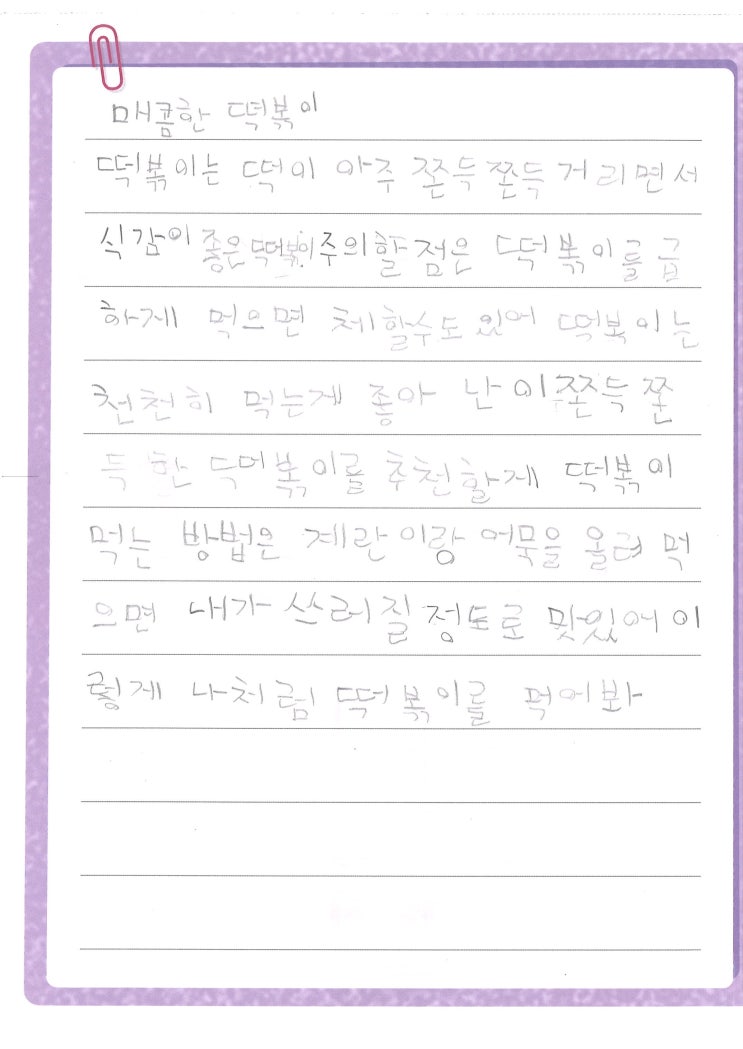 매콤한 떡볶이
떡볶이는 떡이 아주 쫀득쫀득 거리면서
식감이 좋은 떡볶이 주의할 점은 떡볶이를 급
하게 먹으면 체할수도 있어 떡볶이는
천천히 먹는게 좋아 난 이 쫀득 쫀
득 한 떡볶이를 추천할게 떡볶이
먹는 방법은 계란 이랑 어묵을 올려 먹
으면 내가 쓰러질 정도로 맛있어 이
렇게 나처럼 떡볶이를 먹어봐